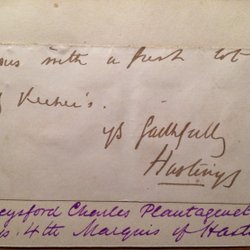 with a fresh lot
yrs faithfully
Hastings
Charles Plantagenet
4th Marquis of Hast